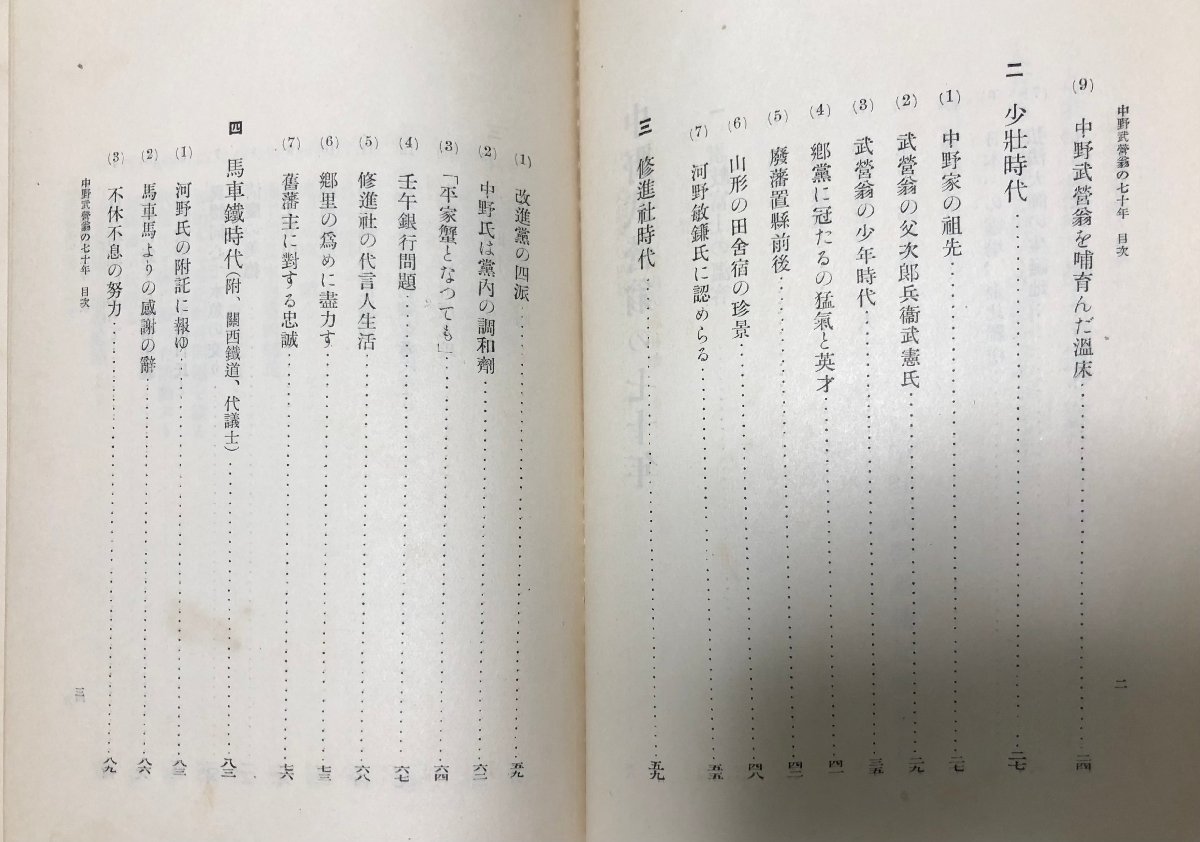 中野武營翁の七十年 目次
(9) 中野武營翁を哺育んだ溫床……二四
二 少壯時代……二七
(1) 中野家の祖先……二七
(2) 武營翁の父次郎兵衞武憲氏……二九
(3) 武營翁の少年時代……三五
(4) 鄕黨に冠たるの猛氣と英才……四一
(5) 廢藩置縣前後……四二
(6) 山形の田舍宿の珍景……四八
(7) 河野敏鎌氏に認めらる……五五
三 修進社時代……五九
二
(1) 改進黨の四派……五九
(2) 中野氏は黨內の調和劑……六二
(3) 「平家蟹となつても」……六四
(4) 壬午銀行問題……六七
(5) 修進社の代言人生活……六八
(6) 鄕里の爲めに盡力す……七三
(7) 舊藩主に對する忠誠……七六
四 馬車鐵時代(附、關西鐵道、代議士)……八三
(1) 河野氏の附託に報ゆ……八三
(2) 馬車馬よりの感謝の辭……八六
(3) 不休不息の努力……八九
中野武營翁の七十年 目次
三